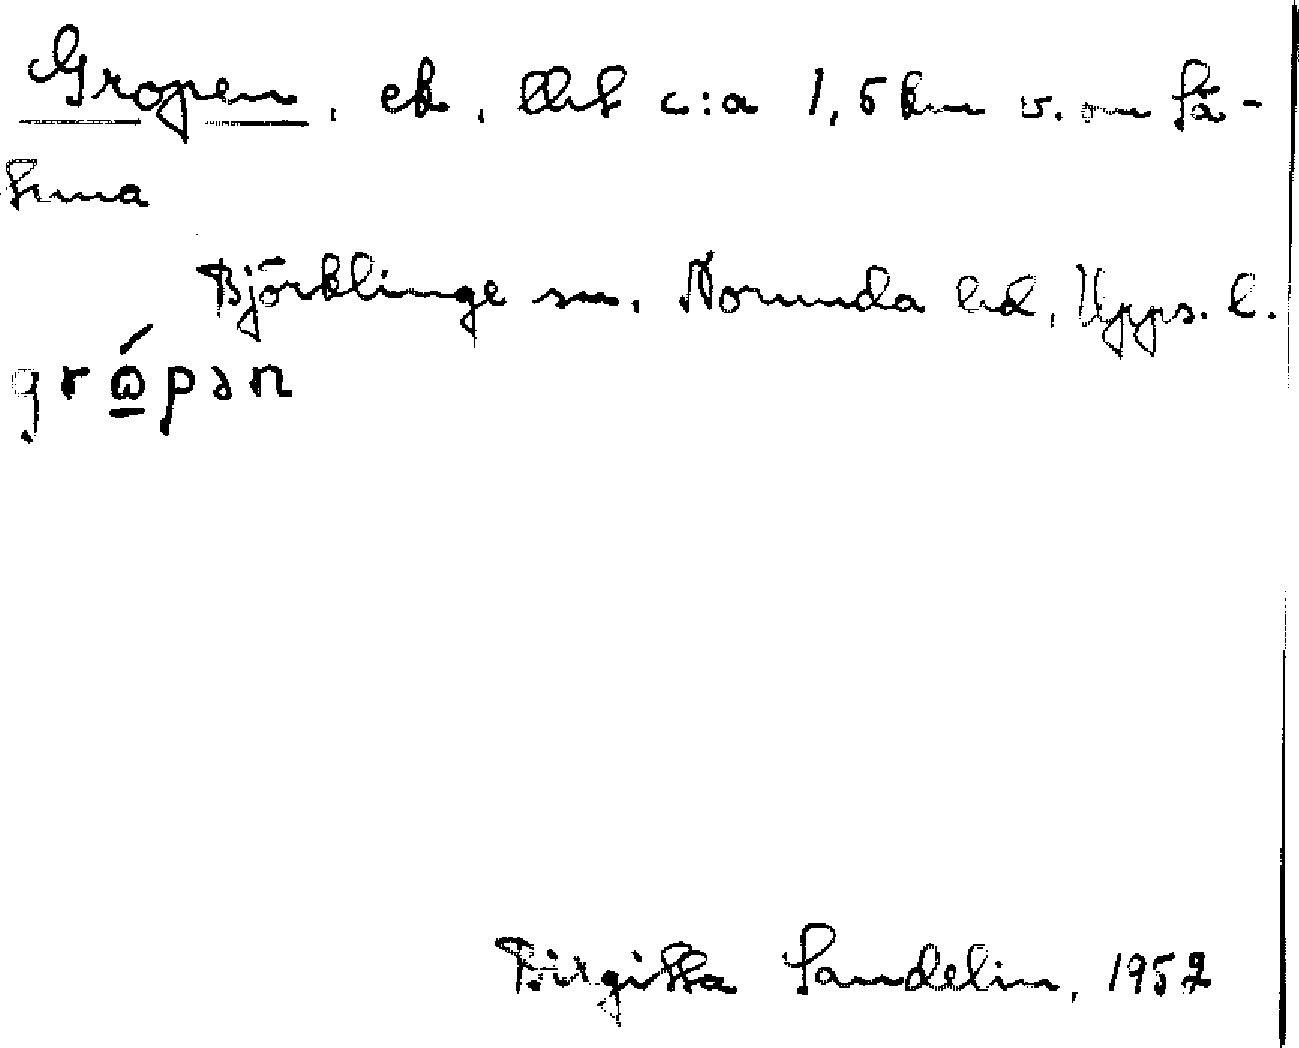 Gropen, ek, c:a 1,5 km v. om Sä-
tuna
Björklinge sn. Norunda hd, Upps. l.
grópən
Birgitta Sandelin, 1952